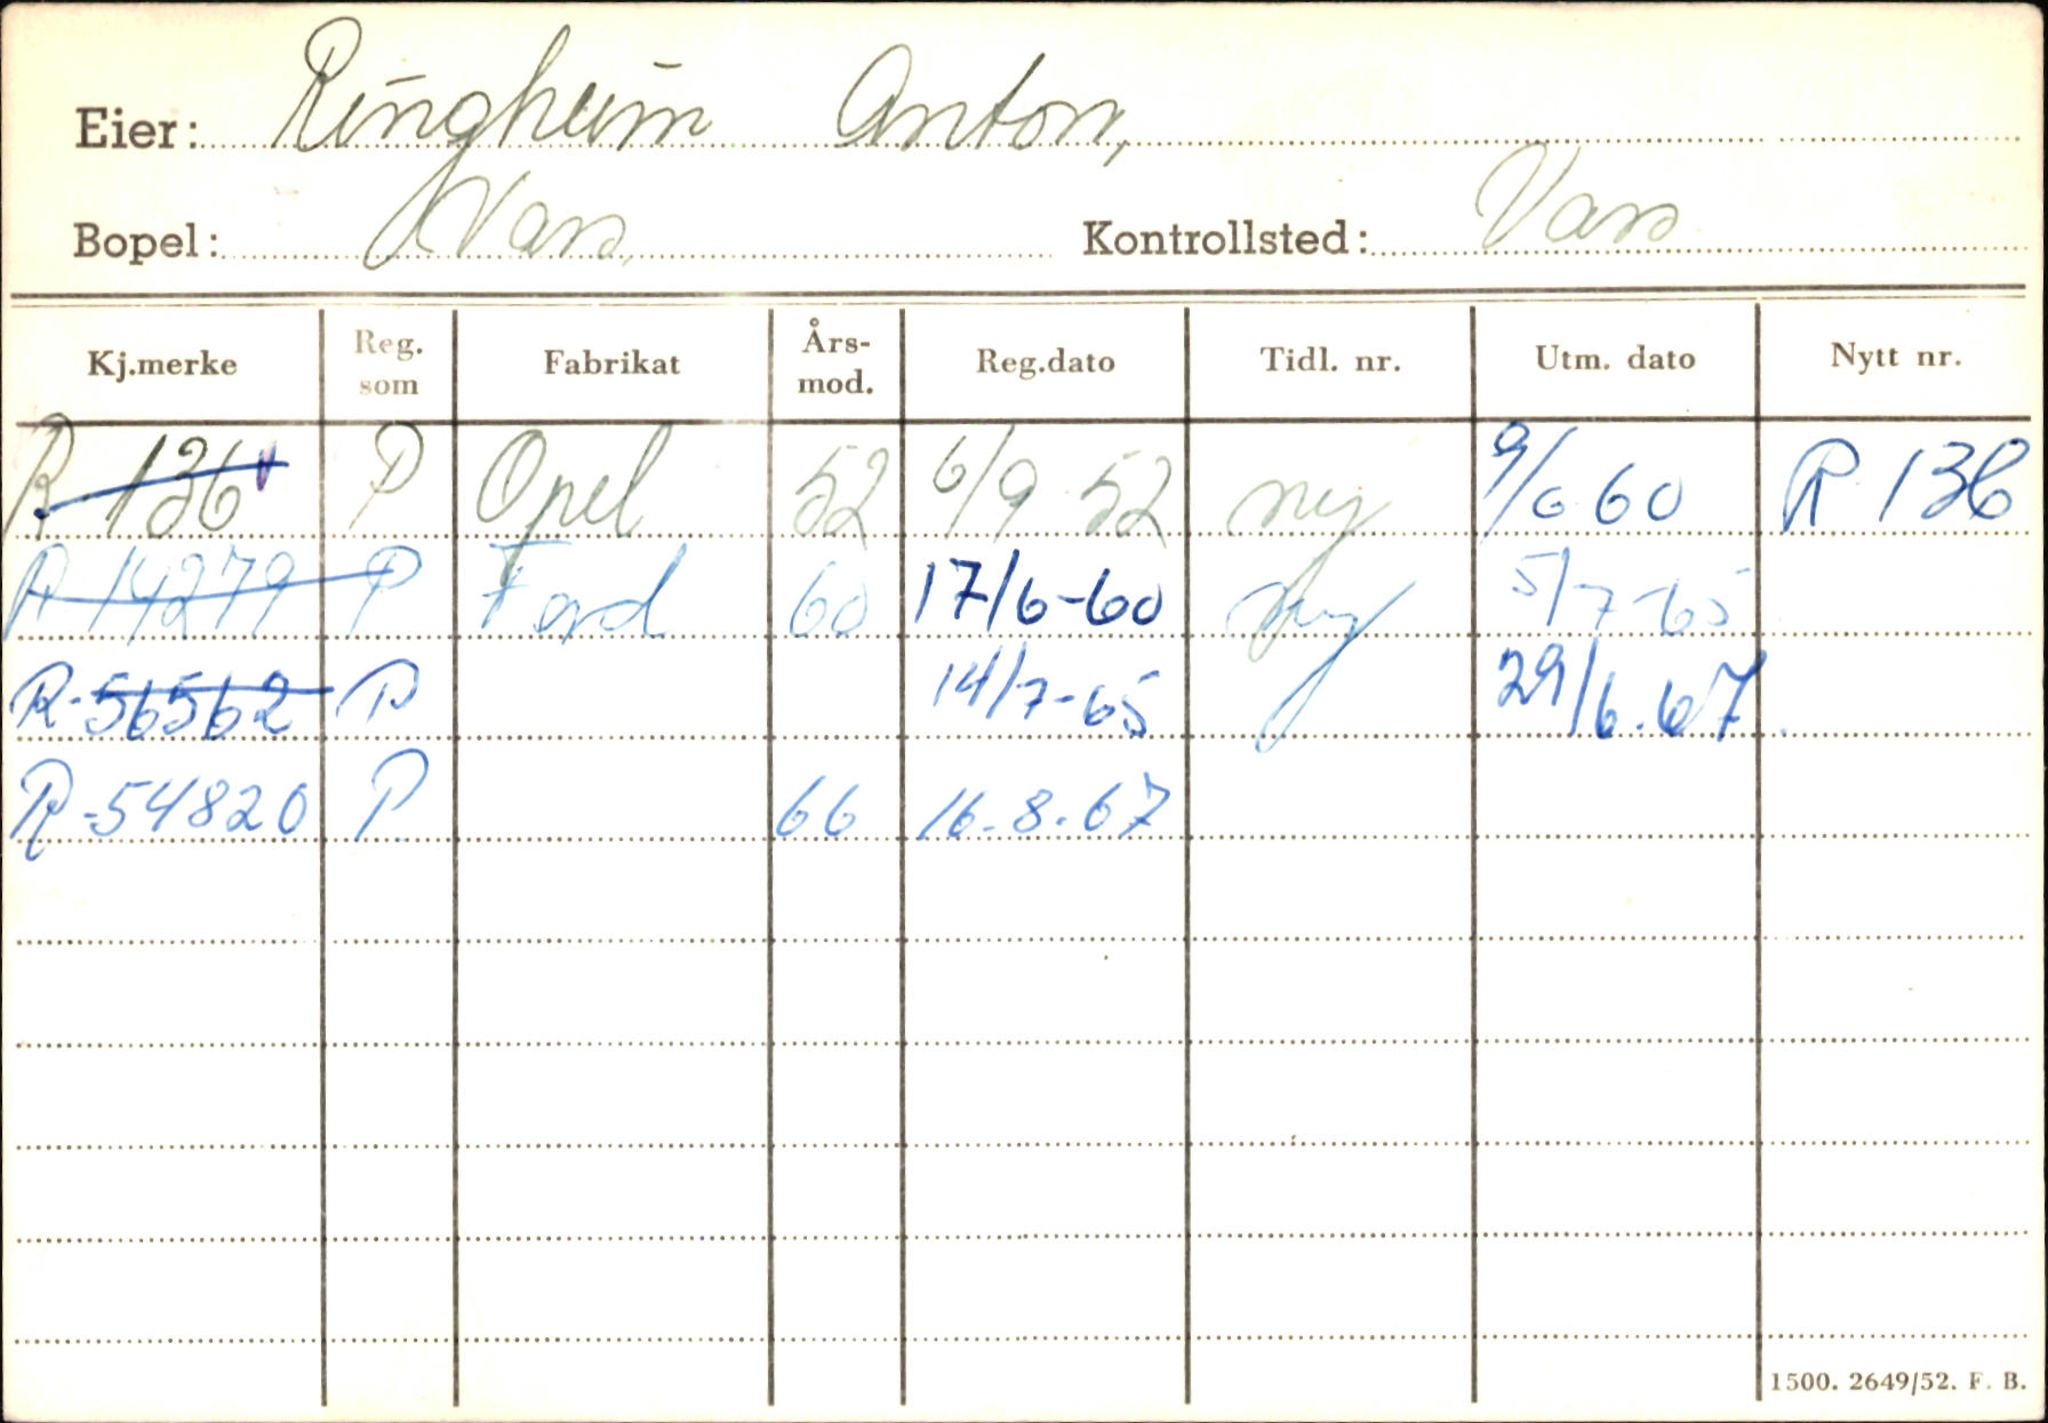 Eier: Ringheim Anton,
Bopel: Voss. Kontrollsted: Voss
Kj.merke Reg. som Fabrikat Års-mod. Reg.dato Tidl. nr. Utm. dato Nytt nr.
R-136 P Opel 52 6/9 52 ny 9/6 60 R 136
R-14279 P Ford 60 17/6-60 ny 5/7-65
R-56562 P 14/7-65 29/6.67.
R-54820 P 66 16.8.67
1500. 2649/52. F. B.